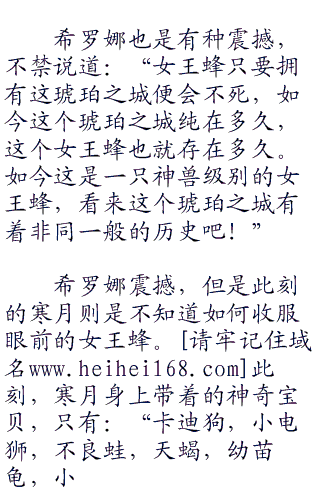 希罗娜也是有种震撼，
不禁说道：“女王蜂只要拥
有这琥珀之城便会不死，如
今这个琥珀之城纯在多久，
这个女王蜂也就存在多久。
如今这是一只神兽级别的女
王蜂，看来这个琥珀之城有
着非同一般的历史吧！”
希罗娜震撼，但是此刻
的寒月则是不知道如何收服
眼前的女王蜂。[请牢记住域
名www.heihei168.com]此
刻，寒月身上带着的神奇宝
贝，只有：“卡迪狗，小电
狮，不良蛙，天蝎，幼苗
龟，小